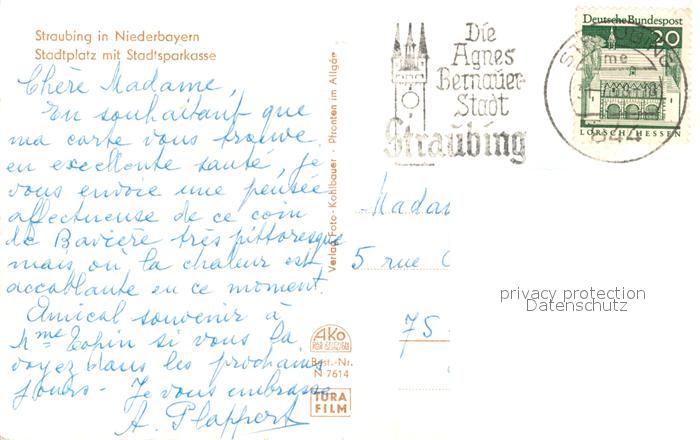 Straubing in Niederbayern
Stadtplatz mit Stadtsparkasse
Chère Madame,
En souhaitant que
ma carte vous trouve
en excellente santé, je
vous envoie une pensée
affectueuse de ce coin
de Bavière très pittoresque
mais où la chaleur est
accablante en ce moment.
Amical souvenir à
Mme Topin si vous la
voyez dans les prochains
jours - Je vous embrasse
A. Plappert
Verlag Foto-Kohlbauer · Pfronten im Allgäu
AKO
Best.-Nr.
N 7614
TURA
FILM
Die
Agnes
Bernauer-
Stadt
Straubing
Deutsche Bundespost
20
LORSCH/HESSEN
STRAUBING
me
844
Madam
5 rue
75
privacy protection
Datenschutz